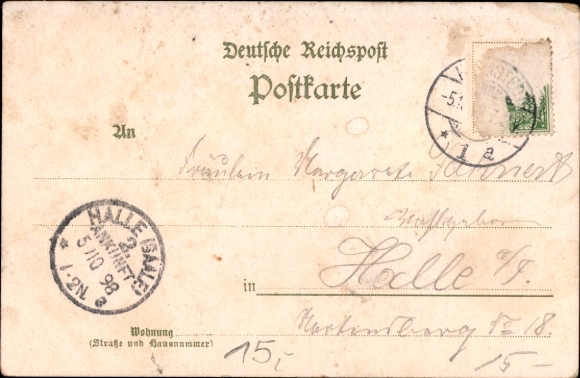 Deutsche Reichspost
Postkarte
-5.1
* 1 a
An
Fräulein Margarete
Wohlgeboren
HALLE (SAALE)
2.
ANKUNFT
5/10 98
* 1-2N. a
Halle a/S.
in
Martinsberg No 18.
Wohnung
(Straße und Hausnummer)
15,- 15-